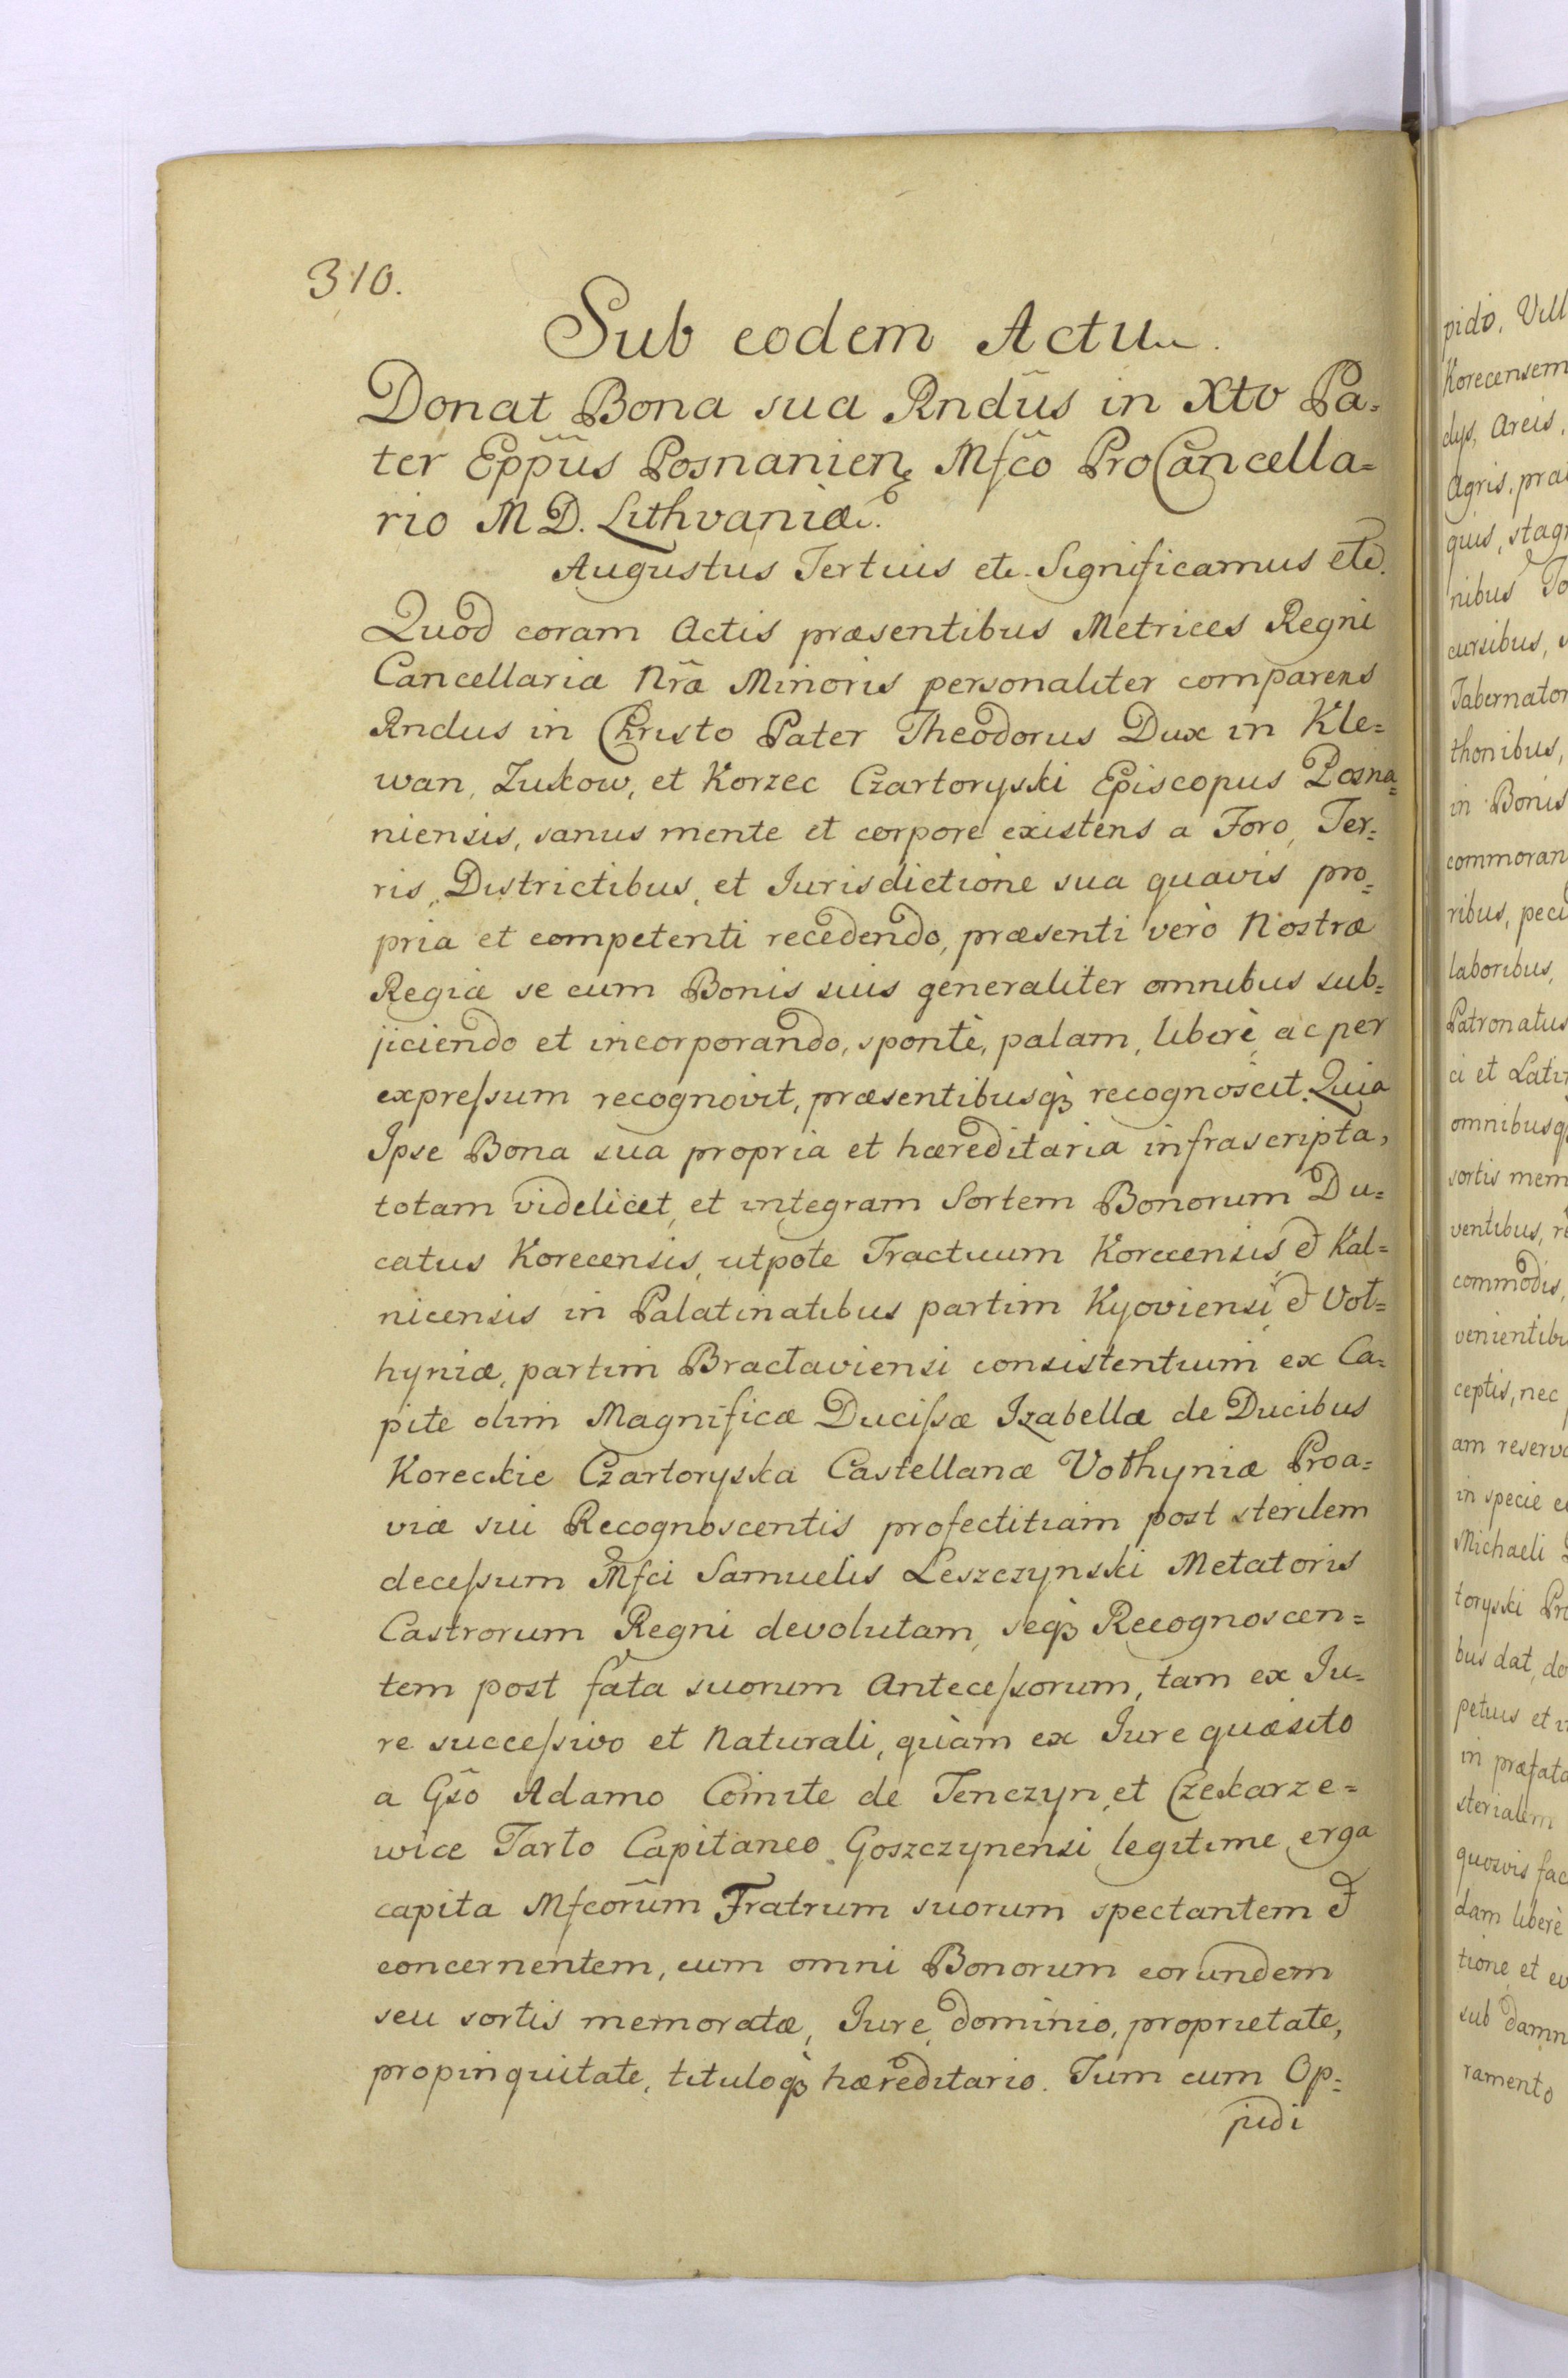 310.
Sub eodem Actu.
Donat Bona sua Rndus in Xto Pa=
ter Eppus Posnanien Mfco ProCancella=
rio M D. Lithvaniæ.
Augustus Tertius etc. Significamus etc.
Quod coram Actis præsentibus Metrices Regni
Cancellariæ Nræ Minoris personaliter comparens
Rndus in Christo Pater Theodorus Dux in Kle=
wan, Zukow, et Korzec Czartoryski Episcopus Posna=
niensis, sanus mente et corpore existens a Foro, Ter=
ris, Districtibus, et Jurisdictione sua quavis pro=
pria et competenti recedendo, præsenti verò Nostræ
Regiæ se cum Bonis suis generaliter omnibus sub=
jiciendo et incorporando, spontè, palam, liberè, ac per
expressum recognovit, præsentibusq3 recognoscit. Quia
Ipse Bona sua propria et hæreditaria infrascripta,
totam videlicet, et integram Sortem Bonorum Du=
catus Korecensis, utpote Tractuum Korecensis, et Kal=
nicensis in Palatinatibus partim Kyoviensi, et Vol=
hyniæ, partim Bractaviensi consistentium ex Ca=
pite olim Magnificæ Ducissæ Izabellæ de Ducibus
Koreckie Czartoryska Castellanæ Volhyniæ Proa=
viæ sui Recognoscentis profectitiam post sterilem
decessum Mfci Samuelis Leszczynski Metatoris
Castrorum Regni devolutam, seq3 Recognoscen=
tem post fata suorum Antecessorum, tam ex Ju=
re successivo et Naturali, quàm ex Jure quæsito
a Gso Adamo Comite de Tenczyn, et Czekarze=
wice Tarło Capitaneo Goszczynensi legitime erga
capita Mfcorum Fratrum suorum spectantem et
concernentem, cum omni Bonorum eorundem
seu sortis memoratæ, Jure, dominio, proprietate,
propinquitate, tituloq3 hæreditario. Tum cum Op=
pidi
pido, Vill
Korecensem
dys, Areis,
Agris, pra
quis, stagn
nibus To
cursibus,
Tabernator
thonibus,
in Bonis
commoran
ribus, peci
laboribus,
Patronatus
ci et Lati
omnibusq
sortis mem
ventibus, re
commodis,
venientibu
ceptis, nec
am reserva
in specie e
Michaeli
toryski Pr
bus dat, do
petuis et
in præfata
sterialem
quosvis fac
dam liberè
tione et ev
sub damn
ramento